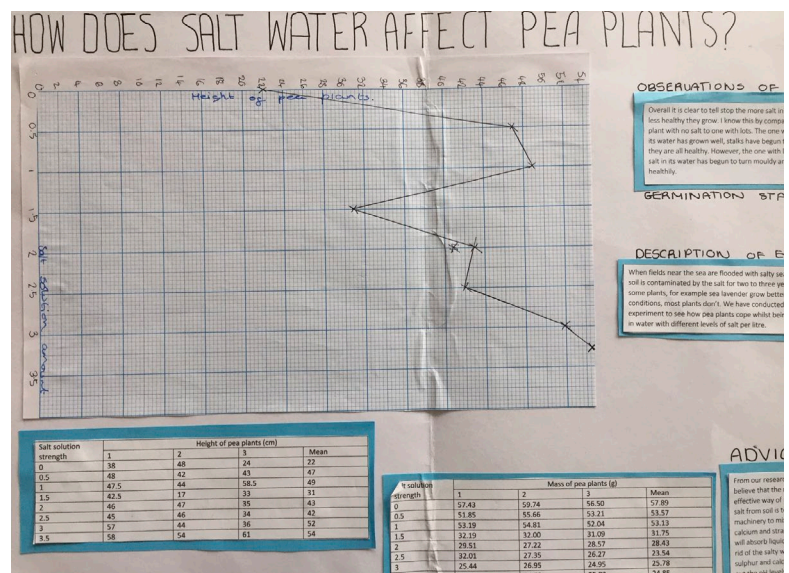 HOW DOES SALT WATER AFFECT PEA PLANTS?
0 2 4 6 8 10 12 14 16 18 20
Height of pea plants.
0
0.5
1
1.5
2
2.5
3
3.5
Salt solution amount
OBSERVATIONS OF
Overall it is clear to tell stop the more salt in
less healthy they grow. I know this by compa
plant with no salt to one with lots. The one w
its water has grown well, stalks have begun t
they are all healthy. However, the one with
salt in its water has begun to turn mouldy an
healthily.
GERMINATION STA
DESCRIPTION OF E
When fields near the sea are flooded with salty se
soil is contaminated by the salt for two to three ye
some plants, for example sea lavender grow bette
conditions, most plants don't. We have conducted
experiment to see how pea plants cope whilst bein
in water with different levels of salt per litre.
Salt solution strength Height of pea plants (cm)
1 2 3 Mean
0 38 48 24 22
0.5 48 42 43 47
1 47.5 44 58.5 49
1.5 42.5 17 33 31
2 46 47 35 43
2.5 45 46 34 42
3 57 44 36 52
3.5 58 54 61 54
solution strength Mass of pea plants (g)
1 2 3 Mean
0 57.43 59.74 56.50 57.89
0.5 51.85 55.66 53.21 53.57
1 53.19 54.81 52.04 53.13
1.5 32.19 32.00 31.09 31.75
2 29.51 27.22 28.57 28.43
2.5 32.01 27.35 26.27 23.54
3 25.44 26.95 24.95 25.78
ADVIC
From our resear
believe that the
effective way of
salt from soil is t
machinery to mi
calcium and stra
will absorb liquid
rid of the salty w
sulphur and calc